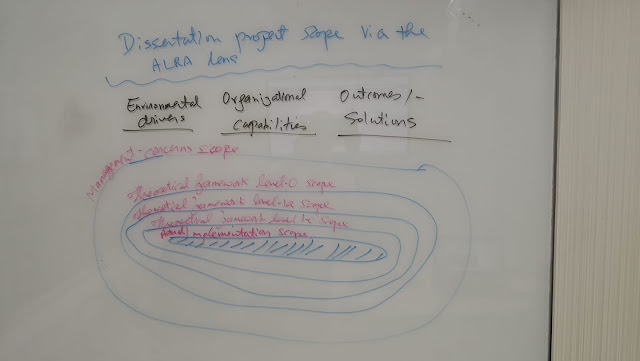 Dissertation project scope via the
ALRA lens
Environmental drivers
Organizational Capabilities
Outcomes/- Solutions
Management-concerns scope
Theoretical framework level-0 scope
Theoretical framework level-1a scope
Theoretical framework level 1c scope
implementation scope